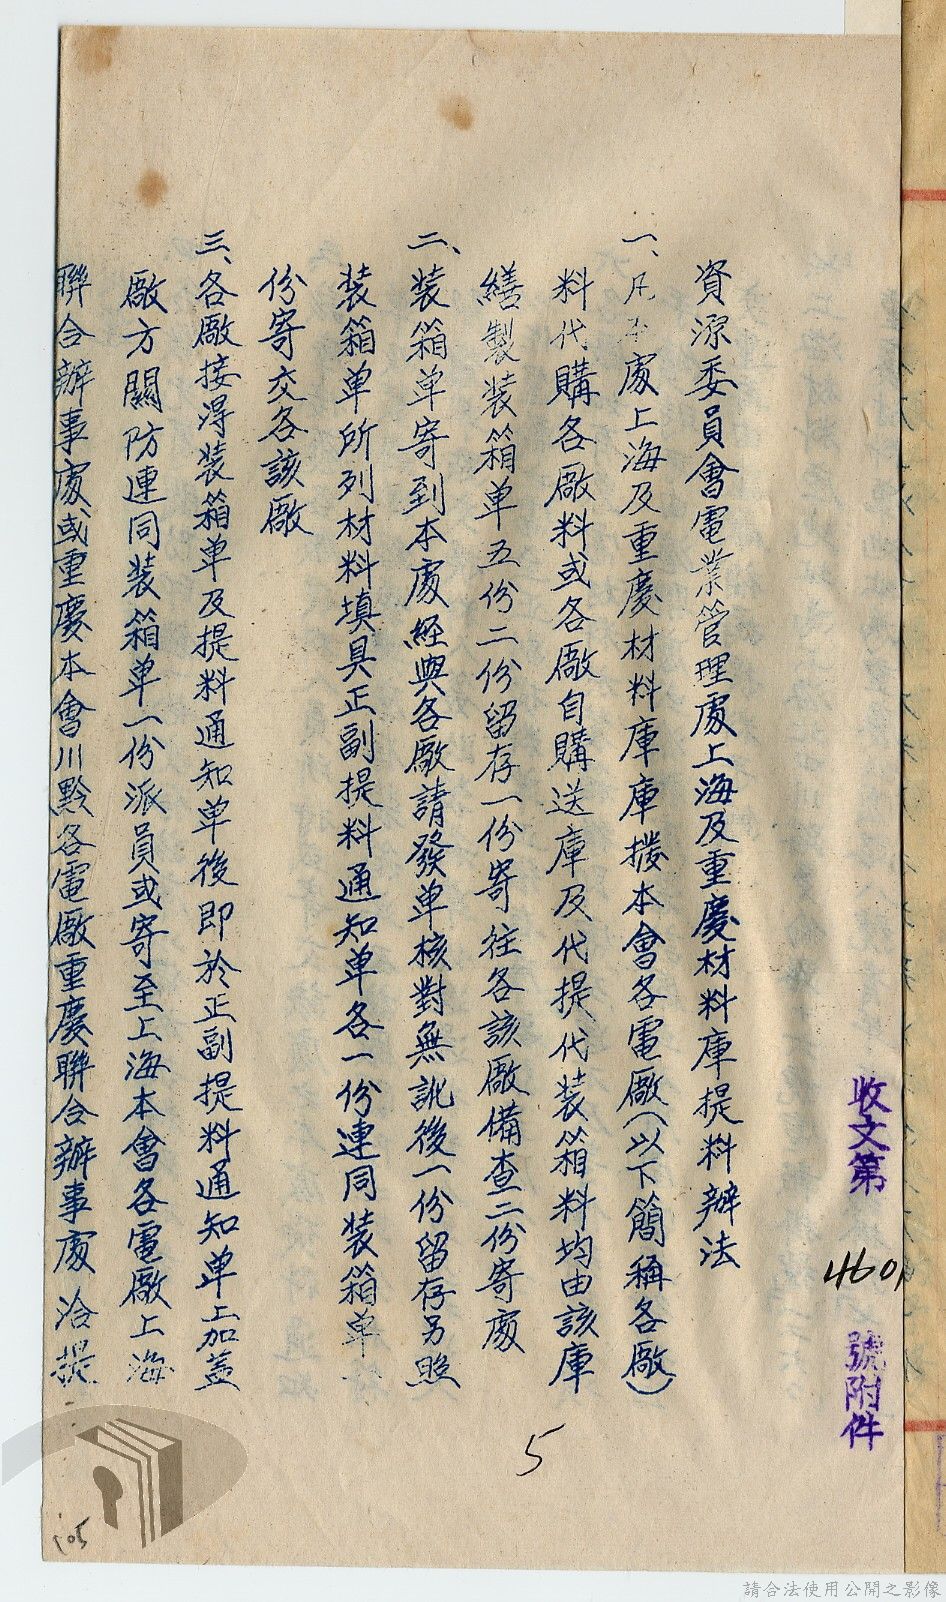 收文第 4601 號附件
資源委員會電業管理處上海及重慶材料庫提料辦法
一、凡本處上海及重慶材料庫庫撥本會各電廠(以下簡稱各廠)
料代購各廠料或各廠自購送庫及代提代裝箱料均由該庫
繕製裝箱单五份二份留存一份寄往各該廠備查二份寄處
二、裝箱单寄到本處經與各廠請發单核對無訛後一份留存另照
裝箱单所列材料填具正副提料通知单各一份連同装箱单
份寄交各該廠
三、各廠接得装箱单及提料通知单後即於正副提料通知单上加蓋
廠方關防連同装箱单一份派員或寄至上海本會各電廠上海
聯合辦事處或重慶本會川黔各電廠重慶聯合辦事處洽提
5
105
請合法使用公開之影像